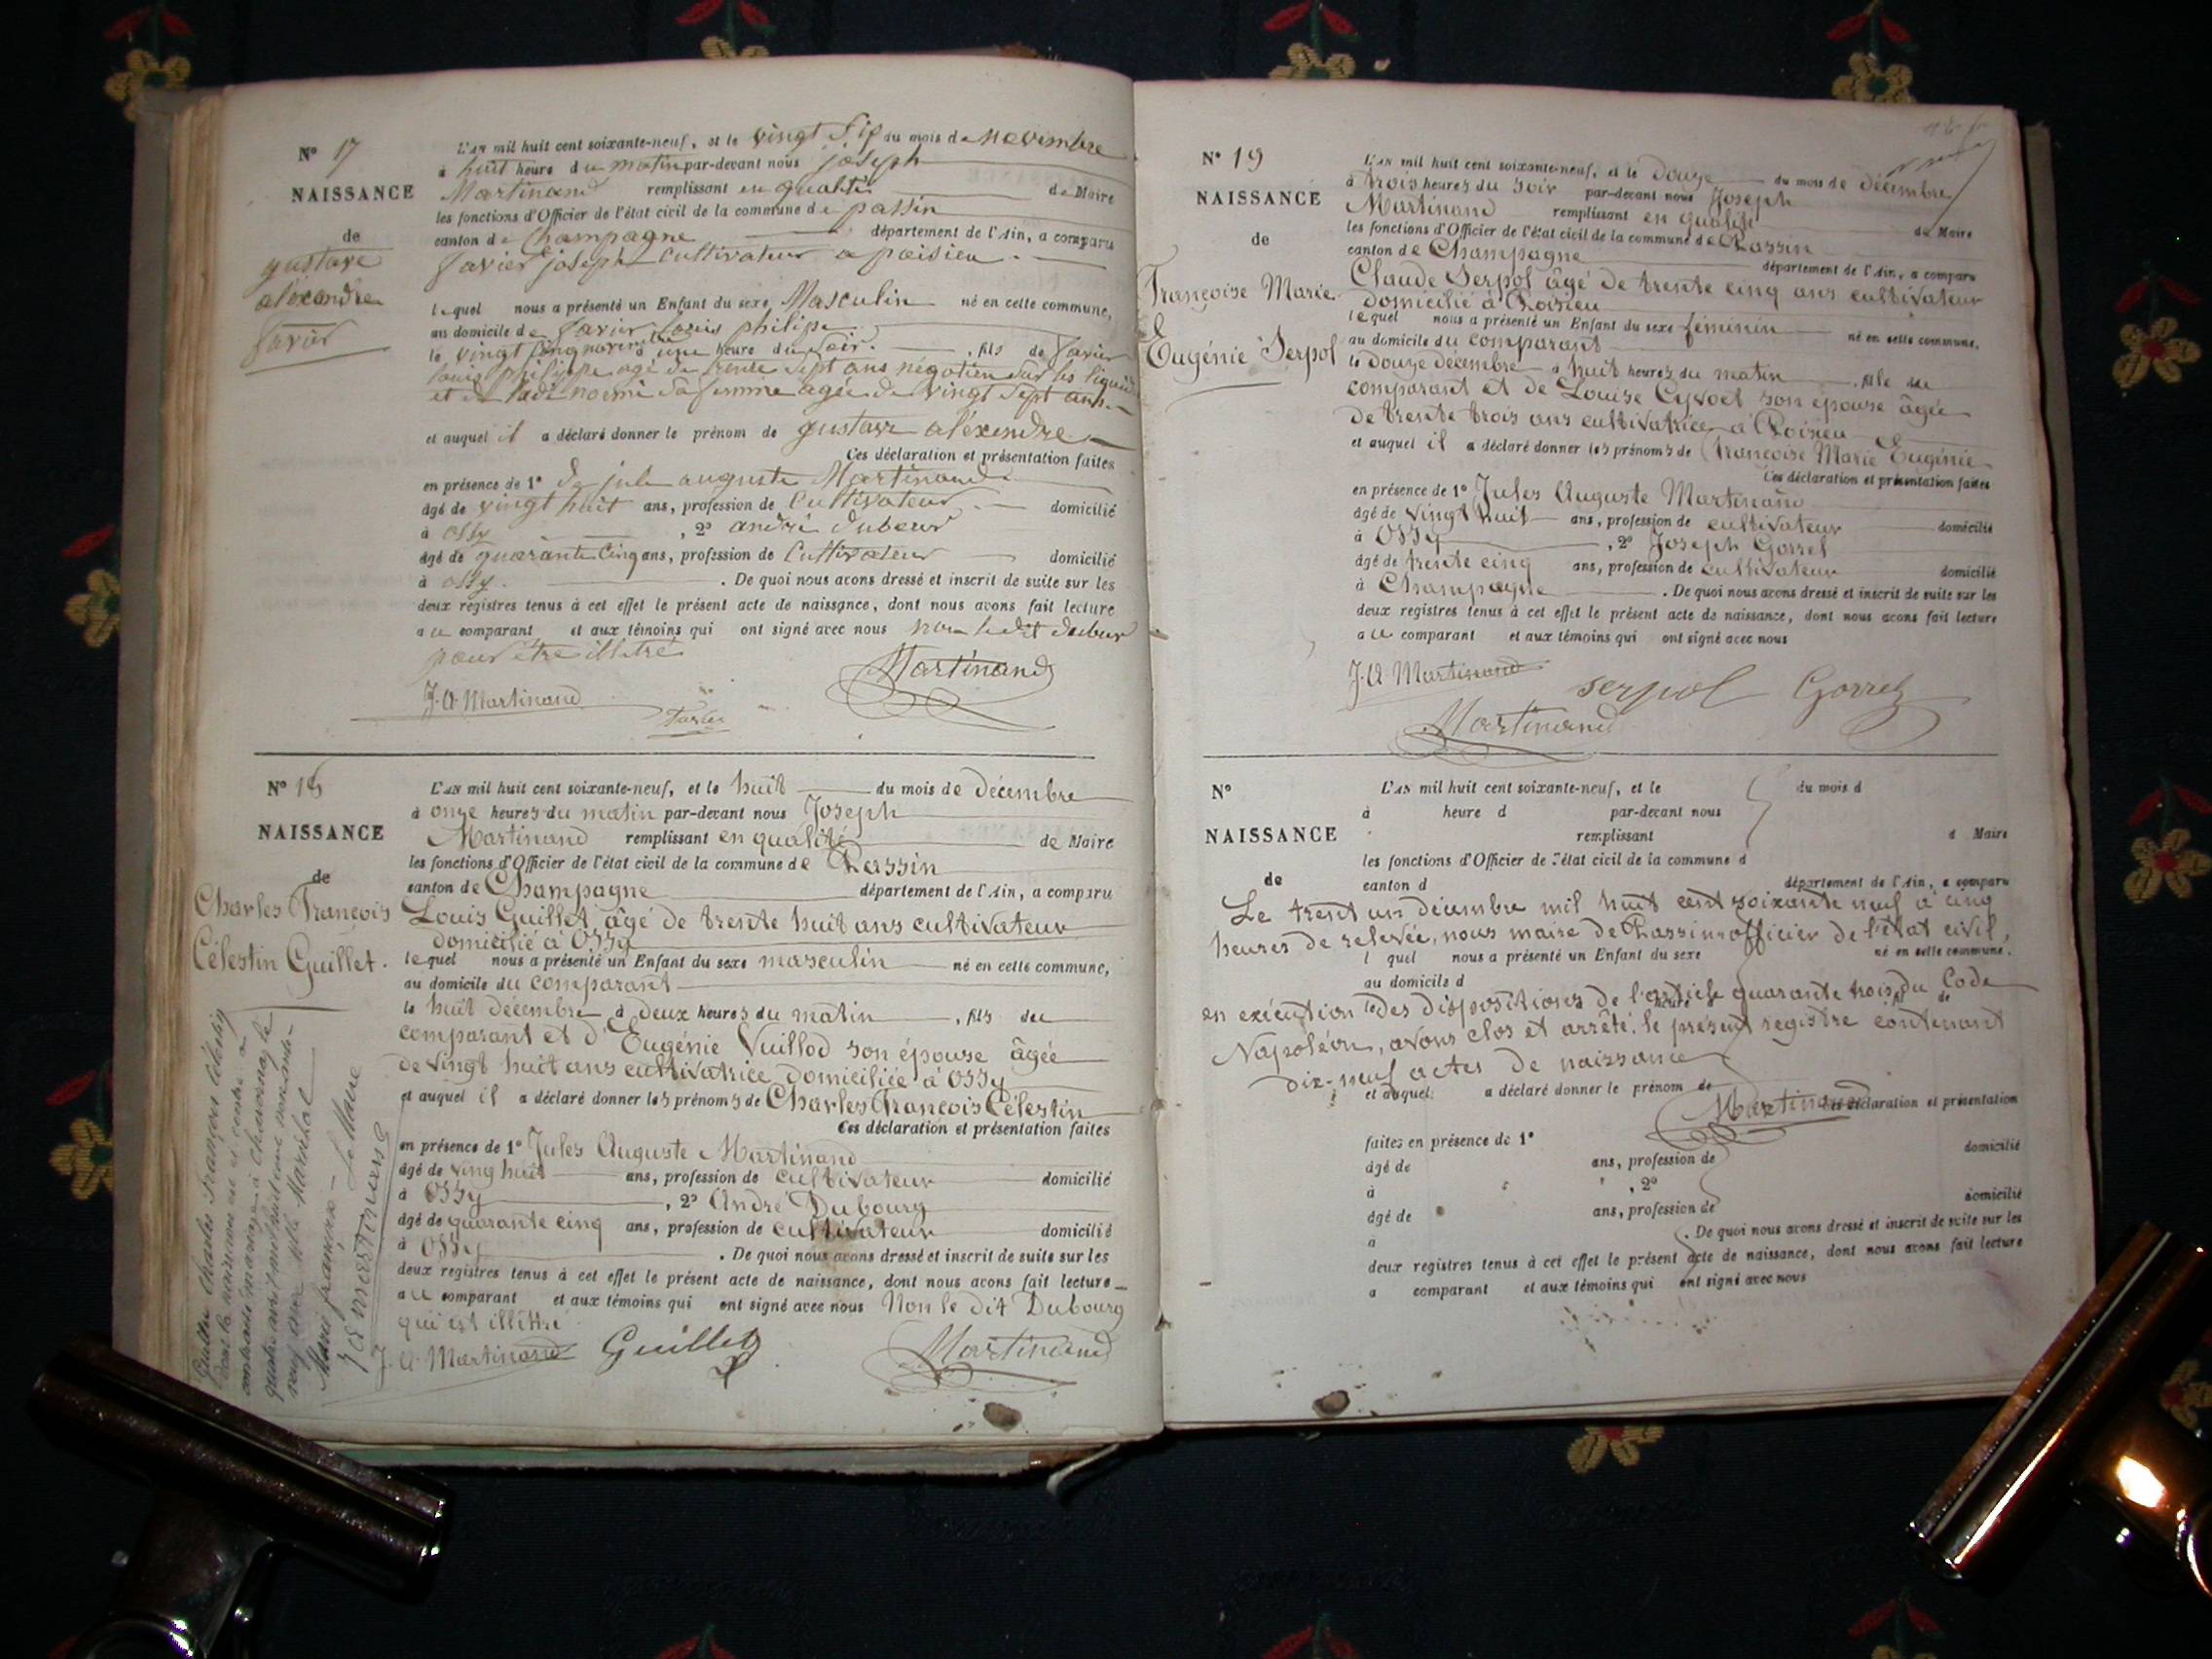 N° 17
NAISSANCE
de
gustave
aléxandre
favier
L'an mil huit cent soixante-neuf, et le vingt six du mois de novembre
à huit heure du matin par-devant nous joseph
Martinand remplissant en qualité de Maire
les fonctions d'Officier de l'état civil de la commune de passin
canton de Champagne département de l'Ain, a comparu
favier joseph cultivateur a poisieu
lequel nous a présenté un Enfant du sexe Masculin né en cette commune,
au domicile de favier louis philipe
le vingt cinq novembre à une heure du soir. , fils de favier
louis philippe agé de trente sept ans négotien sur les
et de noemi sa femme agée de vingt sept ans
et auquel il a déclaré donner le prénom de gustave aléxendre
Ces déclaration et présentation faites
en présence de 1° de jule auguste Martinand
âgé de vingt huit ans, profession de Cultivateur domicilié
à ossy , 2° andré dubour
âgé de quarante Cinq ans, profession de Cultivateur domicilié
à ossy. . De quoi nous avons dressé et inscrit de suite sur les
deux registres tenus à cet effet le présent acte de naissance, dont nous avons fait lecture
au comparant et aux témoins qui ont signé avec nous non ledit dubour
pour être illitré
Martinand
J. A. Martinand
Favier
N° 18
NAISSANCE
de
Charles François
Célestin Guillet.
L'an mil huit cent soixante-neuf, et le huit du mois de décembre
à onze heures du matin par-devant nous Joseph
Martinand remplissant en qualité de Maire
les fonctions d'Officier de l'état civil de la commune de Passin
canton de Champagne département de l'Ain, a comparu
Louis Guillet âgé de trente huit ans cultivateur
domicilié à Ossy
lequel nous a présenté un Enfant du sexe masculin né en cette commune,
au domicile du comparant
le huit décembre à deux heures du matin , fils du
comparant et d'Eugénie Vuillod son épouse âgée
de vingt huit ans cultivatrice domiciliée à Ossy
et auquel il a déclaré donner les prénoms de Charles François Célestin
Ces déclaration et présentation faites
en présence de 1° Jules Auguste Martinand
âgé de ving huit ans, profession de cultivateur domicilié
à Ossy , 2° André Dubourg
âgé de quarante cinq ans, profession de cultivateur domicilié
à Ossy . De quoi nous avons dressé et inscrit de suite sur les
deux registres tenus à cet effet le présent acte de naissance, dont nous avons fait lecture
au comparant et aux témoins qui ont signé avec nous Non le dit Dubourg
qui est illittré
J. A. Martinand Guillet Martinand
Guillet Charles François Célestin
dont la naissance est ci contre a
contracté mariage à Chavornay le
quatre avril mil huit cent
avec Mlle Maréchal
Marie françoise - Le Maire
N° 19
NAISSANCE
de
Françoise Marie
Eugénie Serpol
L'an mil huit cent soixante-neuf, et le douze du mois de décembre
à trois heures du soir par-devant nous Joseph
Martinand remplissant en qualité de Maire
les fonctions d'Officier de l'état civil de la commune de Passin
canton de Champagne département de l'Ain, a comparu
Claude Serpol âgé de trente cinq ans cultivateur
domicilié à Poisieu
lequel nous a présenté un Enfant du sexe féminin né en cette commune,
au domicile du comparant
le douze décembre à huit heures du matin , fille du
comparant et de Louise Cyvoct son épouse âgée
de trente trois ans cultivatrice a Poisieu
et auquel il a déclaré donner les prénoms de Françoise Marie Eugénie
Ces déclaration et présentation faites
en présence de 1° Jules Auguste Martinand
âgé de vingt huit ans, profession de cultivateur domicilié
à Ossy , 2° Joseph Gorret
âgé de trente cinq ans, profession de cultivateur domicilié
à Champagne . De quoi nous avons dressé et inscrit de suite sur les
deux registres tenus à cet effet le présent acte de naissance, dont nous avons fait lecture
au comparant et aux témoins qui ont signé avec nous
J. A. Martinand serpol Gorret
Martinand
N°
NAISSANCE
de
L'an mil huit cent soixante-neuf, et le du mois d
à heure d par-devant nous
remplissant d Maire
les fonctions d'Officier de l'état civil de la commune d
canton d département de l'Ain, a comparu
Le trent un décembre mil huit cent soixante neuf à cinq
heures de relevée, nous maire de Passin officier de l'état civil,
l quel nous a présenté un Enfant du sexe né en cette commune,
au domicile d
en exécution des dispositions de l'article quarante trois du Code
le heure fil de
Napoléon, avons clos et arrêté, le présent registre contenant
dix-neuf actes de naissance
et auquel a déclaré donner le prénom de
Martinand
Ces déclaration et présentation
faites en présence de 1° domicilié
âgé de ans, profession de
à , 2° domicilié
âgé de ans, profession de
à . De quoi nous avons dressé et inscrit de suite sur les
deux registres tenus à cet effet le présent acte de naissance, dont nous avons fait lecture
a comparant et aux témoins qui ont signé avec nous